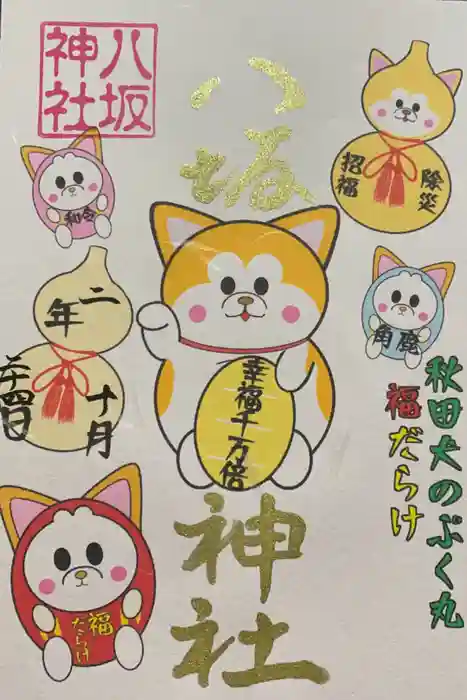 八坂
神社
八坂
神社
令和
二年
十月
二十四日
除災
招福
鹿角
幸福千万倍
秋田犬のぷく丸
福だらけ
福
だらけ